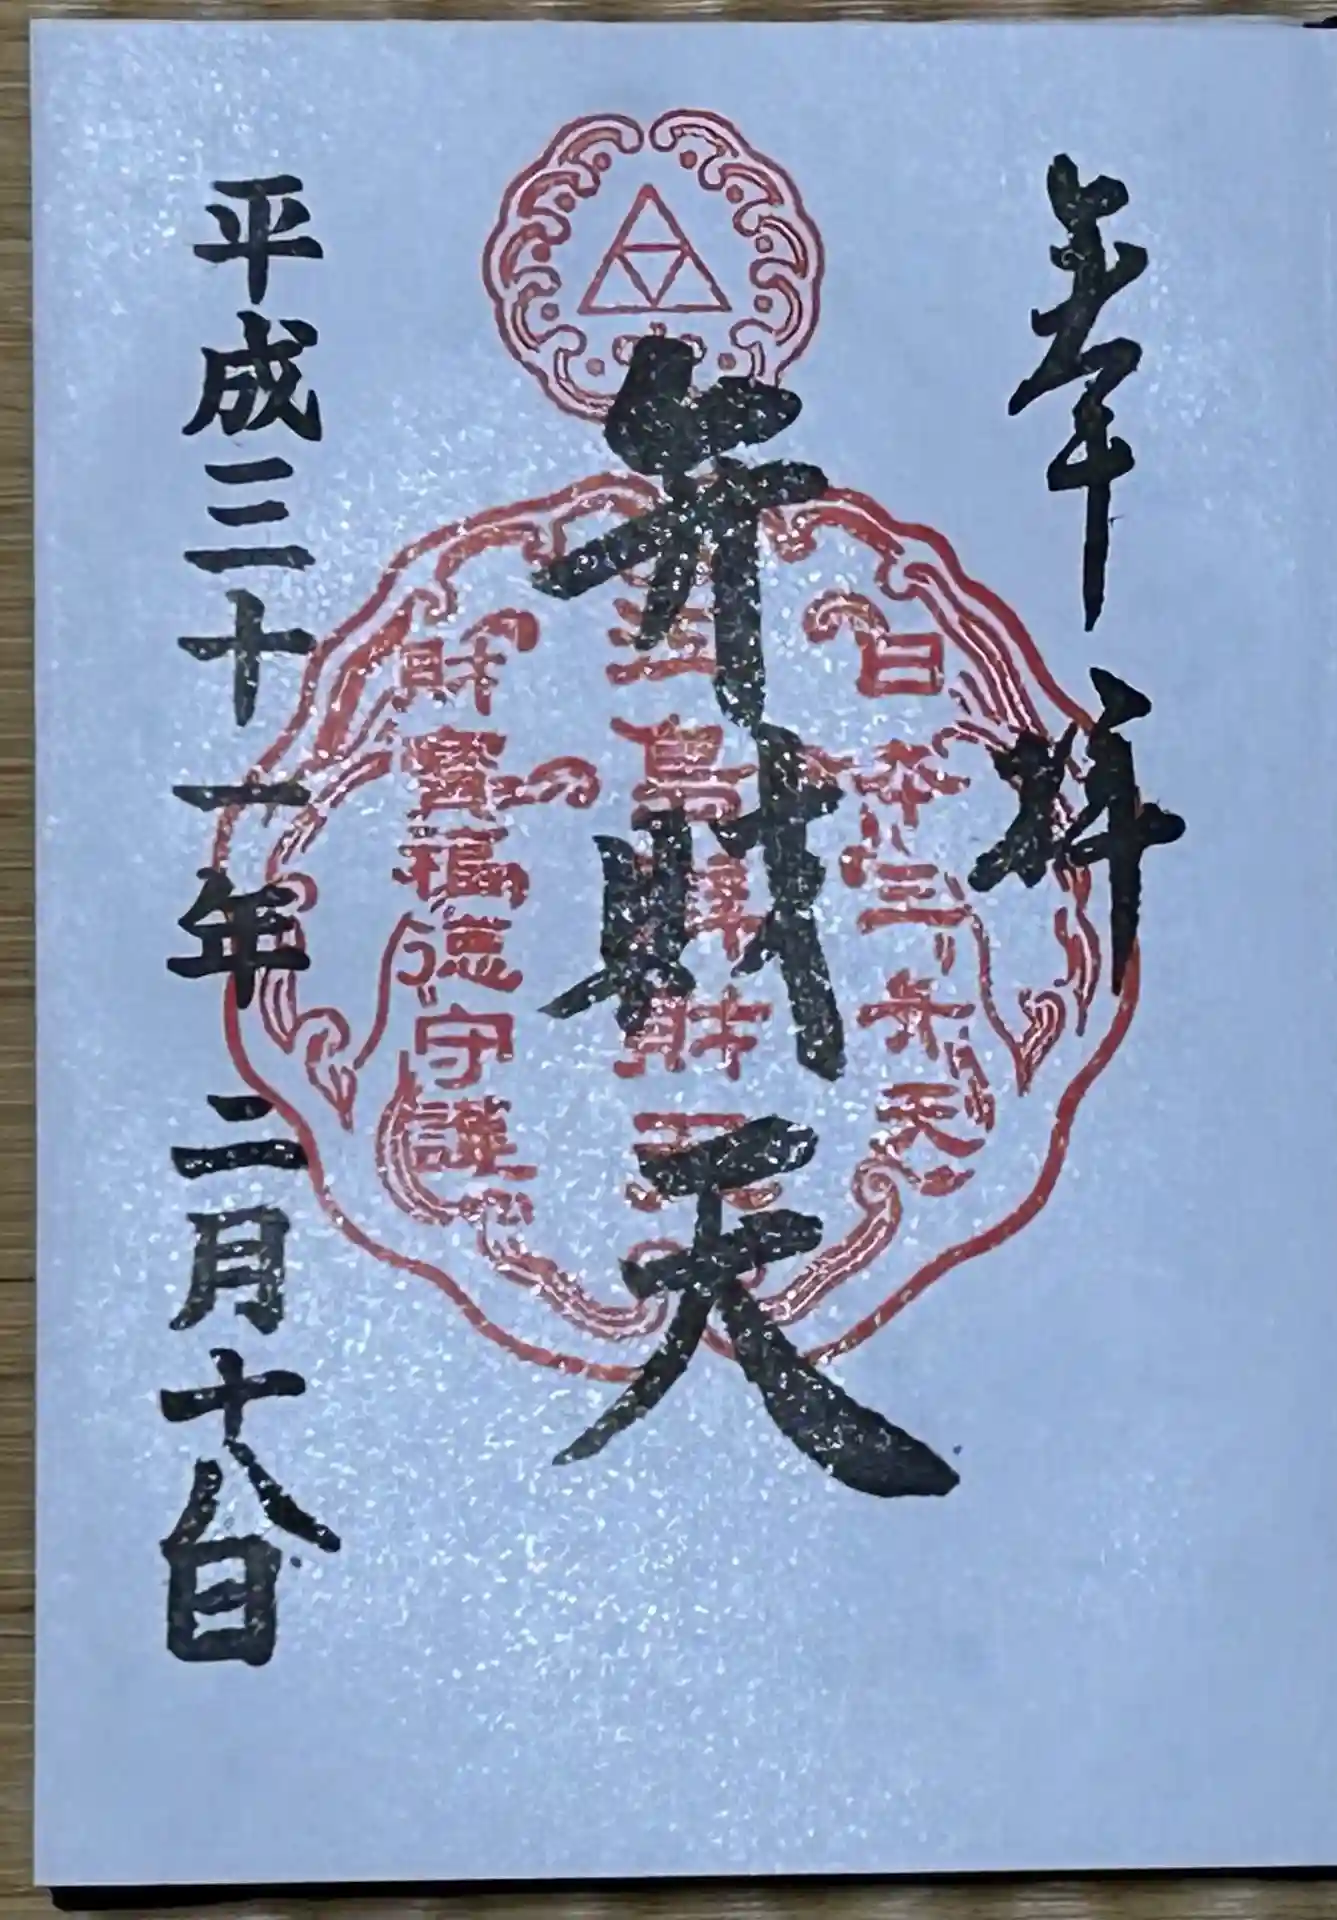 奉拝
日本三弁天
江島辨財天
財寶福徳守護
弁財天
平成三十一年 二月十八日